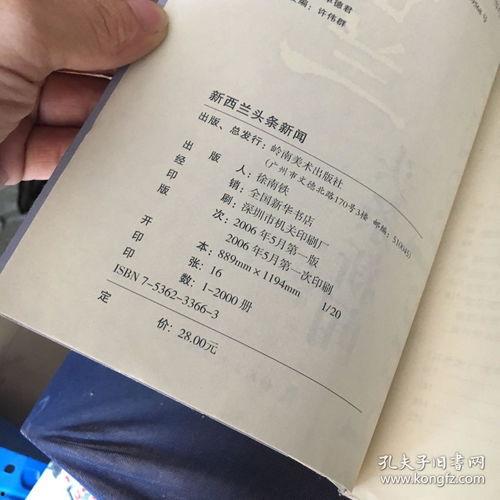 德君
编：许伟群
新西兰头条新闻
出版、总发行：岭南美术出版社
（广州市文德北路170号3楼 邮编：510045）
出 版 人：徐南铁
经 销：全国新华书店
印 刷：深圳市机关印刷厂
版 次：2006年5月第一版
2006年5月第一次印刷
开 本：889mm×1194mm 1/20
印 张：16
印 数：1-2000册
ISBN 7-5362-3366-3
定 价：28.00元
孔夫子旧书网
www.kongfz.com